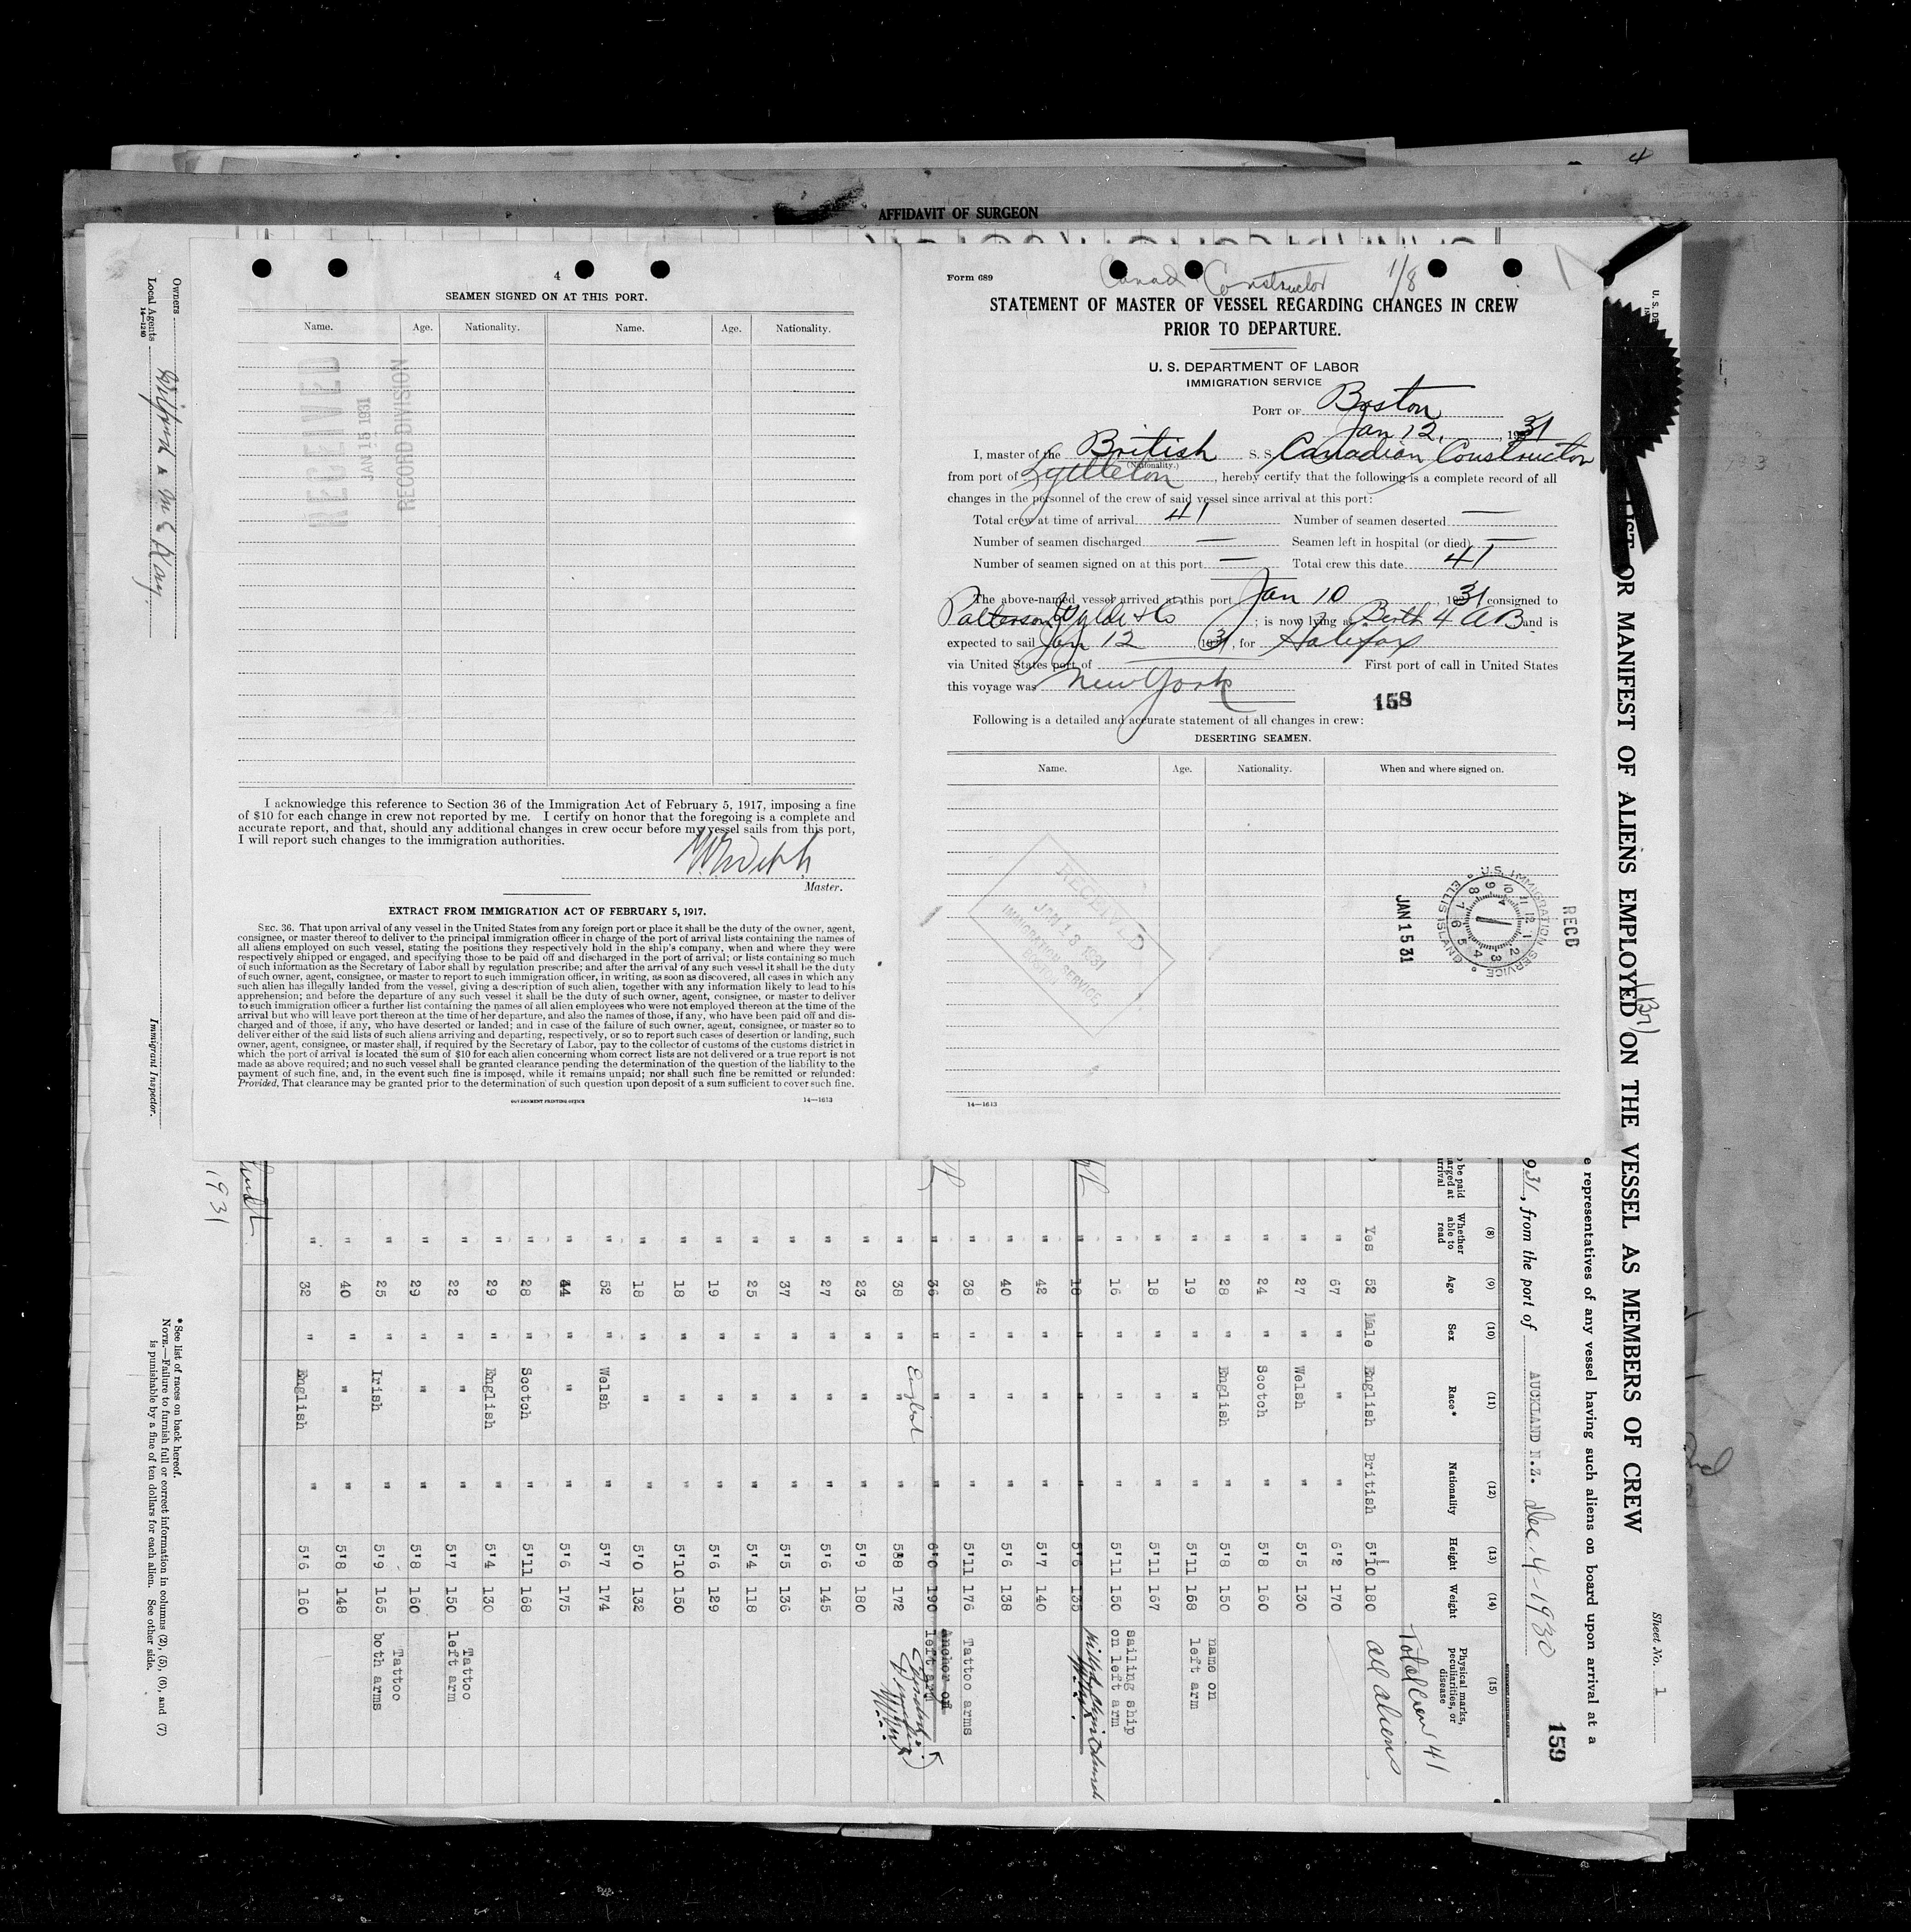 4
AFFIDAVIT OF SURGEON
4
SEAMEN SIGNED ON AT THIS PORT.
Name. Age. Nationality. Name. Age. Nationality.
RECEIVED
JAN 15 1931
RECORD DIVISION
I acknowledge this reference to Section 36 of the Immigration Act of February 5, 1917, imposing a fine
of $10 for each change in crew not reported by me. I certify on honor that the foregoing is a complete and
accurate report, and that, should any additional changes in crew occur before my vessel sails from this port,
I will report such changes to the immigration authorities.
Master.
EXTRACT FROM IMMIGRATION ACT OF FEBRUARY 5, 1917.
SEC. 36. That upon arrival of any vessel in the United States from any foreign port or place it shall be the duty of the owner, agent,
consignee, or master thereof to deliver to the principal immigration officer in charge of the port of arrival lists containing the names of
all aliens employed on such vessel, stating the positions they respectively hold in the ship's company, when and where they were
respectively shipped or engaged, and specifying those to be paid off and discharged in the port of arrival; or lists containing so much
of such information as the Secretary of Labor shall by regulation prescribe; and after the arrival of any such vessel it shall be the duty
of such owner, agent, consignee, or master to report to such immigration officer, in writing, as soon as discovered, all cases in which any
such alien has illegally landed from the vessel, giving a description of such alien, together with any information likely to lead to his
apprehension; and before the departure of any such vessel it shall be the duty of such owner, agent, consignee, or master to deliver
to such immigration officer a further list containing the names of all alien employees who were not employed thereon at the time of the
arrival but who will leave port thereon at the time of her departure, and also the names of those, if any, who have been paid off and dis-
charged and of those, if any, who have deserted or landed; and in case of the failure of such owner, agent, consignee, or master so to
deliver either of the said lists of such aliens arriving and departing, respectively, or so to report such cases of desertion or landing, such
owner, agent, consignee, or master shall, if required by the Secretary of Labor, pay to the collector of customs of the customs district in
which the port of arrival is located the sum of $10 for each alien concerning whom correct lists are not delivered or a true report is not
made as above required; and no such vessel shall be granted clearance pending the determination of the question of the liability to the
payment of such fine, and, in the event such fine is imposed, while it remains unpaid; nor shall such fine be remitted or refunded:
Provided, That clearance may be granted prior to the determination of such question upon deposit of a sum sufficient to cover such fine.
GOVERNMENT PRINTING OFFICE 14—1613
Form 689
Canad Constructor 1/8
STATEMENT OF MASTER OF VESSEL REGARDING CHANGES IN CREW
PRIOR TO DEPARTURE.
U. S. DEPARTMENT OF LABOR
IMMIGRATION SERVICE
PORT OF Boston
Jan 12, 1931
I, master of the British S. S. Canadian Constructor
(Nationality.)
from port of Lyttleton, hereby certify that the following is a complete record of all
changes in the personnel of the crew of said vessel since arrival at this port:
Total crew at time of arrival 41 Number of seamen deserted —
Number of seamen discharged — Seamen left in hospital (or died) —
Number of seamen signed on at this port — Total crew this date 41
The above-named vessel arrived at this port Jan 10, 1931 consigned to
Patterson Wylde & Co; is now lying at Berth 4 AB and is
expected to sail Jan 12, 1931, for Halifax
via United States port of — First port of call in United States
this voyage was New York
158
Following is a detailed and accurate statement of all changes in crew:
DESERTING SEAMEN.
Name. Age. Nationality. When and where signed on.
RECEIVED
JAN 13 1931
IMMIGRATION SERVICE,
14—1613
RECD
U.S. IMMIGRATION SERVICE
ELLIS ISLAND
JAN 15 31
Owners
Local Agents
14—1240
Immigrant Inspector.
1931
* See list of races on back hereof.
NOTE.—Failure to furnish full or correct information in columns (2), (5), (6), and (7)
is punishable by a fine of ten dollars for each alien. See other side.
Sheet No. 1
159
OR MANIFEST OF ALIENS EMPLOYED ON THE VESSEL AS MEMBERS OF CREW
(Br)
e representatives of any vessel having such aliens on board upon arrival at a
931, from the port of AUCKLAND N.Z. Dec. 4-1930
(8) (9) (10) (11) (12) (13) (14) (15)
Whether able to read Age Sex Race* Nationality Height Weight Physical marks, peculiarities, or disease
Total Crew 41
all aliens
Yes 52 Male English British 5'10 180
" 67 " " " 6'2 170
" 27 " Welsh " 5'5 130
" 24 " Scotch " 5'8 160
" 28 " English " 5'8 150
" 19 " " " 5'11 168 name on left arm
" 18 " " " 5'11 167
" 16 " " " 5'11 150 sailing ship on left arm
" 18 " " " 5'6 135
" 42 " " " 5'7 140
" 40 " " " 5'6 138
" 38 " " " 5'11 176 Tattoo arms
" 36 " " " 6'0 190 Anchor on left arm
" 38 " " English " 5'8 172
" 23 " " 5'9 180
" 27 " " 5'6 145
" 37 " " 5'5 136
" 25 " " " 5'4 118
" 19 " " " 5'6 129
" 18 " " " 5'10 150
" 18 " " " 5'0 132
" 52 " Welsh 5'7 174
" 44 " " " 5'6 175
" 28 " Scotch " 5'11 168
" 29 " English " 5'4 130
" 22 " " " 5'7 150 Tattoo left arm
" 29 " " " 5'8 160
" 25 " Irish " 5'9 165 Tattoo both arms
" 40 " " " 5'8 148
" 32 " English " 5'6 160